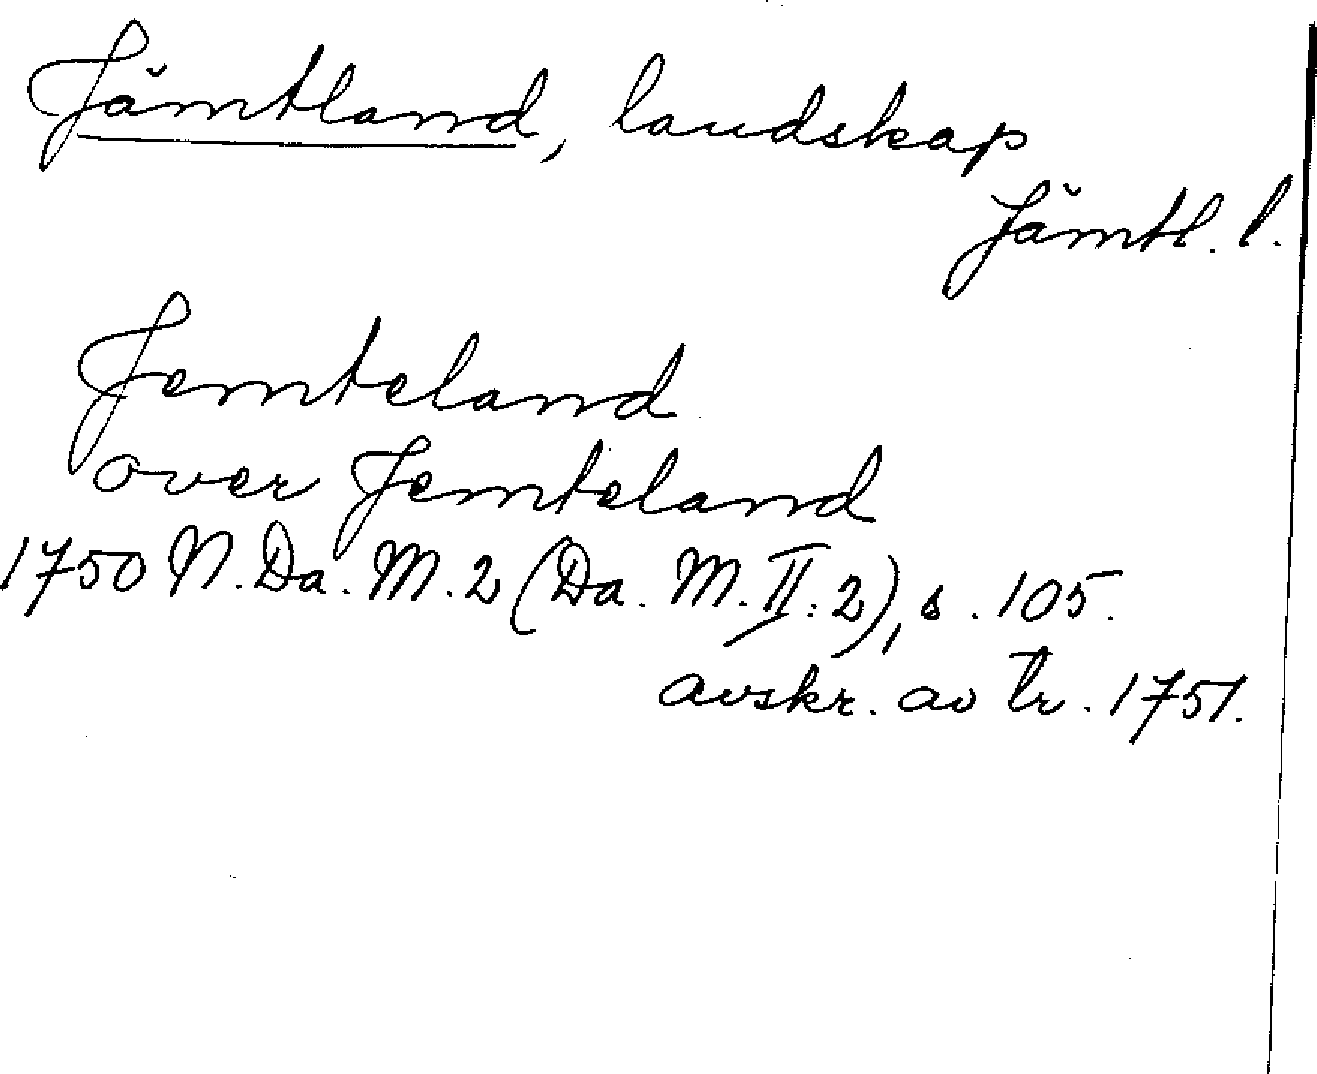 Jämtland, landskap
Jämtl. l.
Jemteland
over Jemteland
1750 N. Da. M. 2 (Da. M. II: 2), s. 105.
avskr. av tr. 1751.